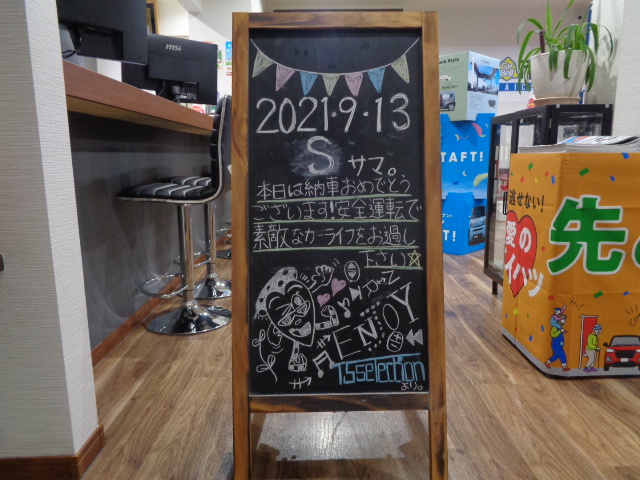 2021・9・13
S サマ。
本日は納車おめでとう
ございます!安全運転で
素敵なカーライフをお過し
下さい☆
ENJOY
TSselection
より。
msi
TAFT!
逃せない!
愛の
先